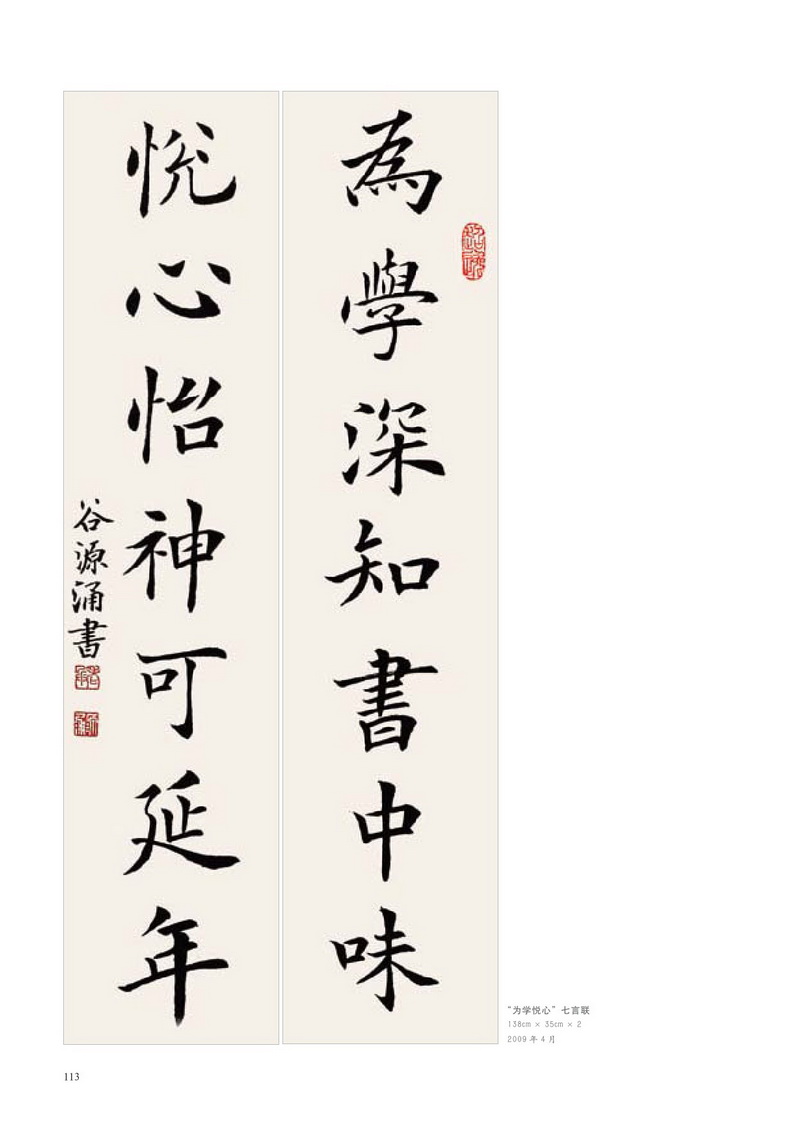 為學深知書中味
悦心怡神可延年
谷源涌書
“为学悦心”七言联
138cm × 35cm × 2
2009 年 4 月
113